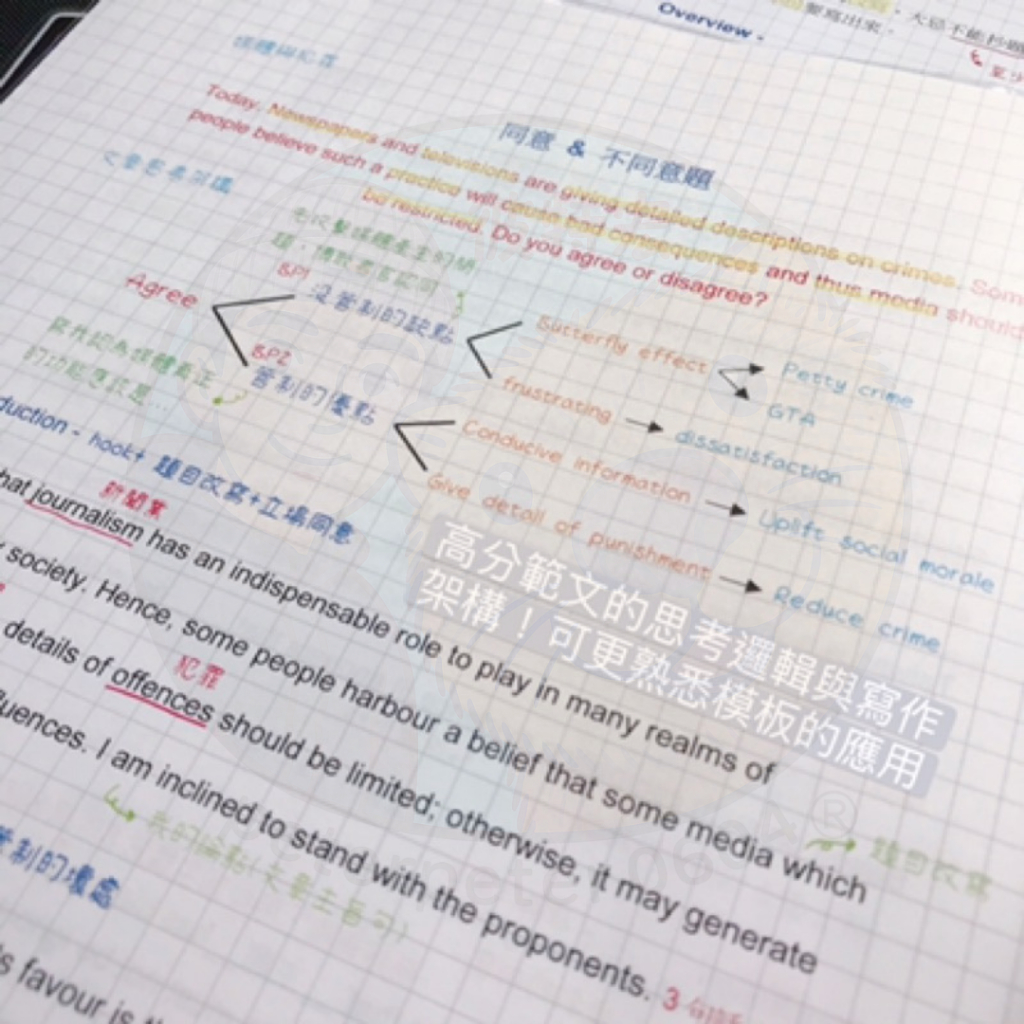 Overview -
寫出來。大忌不能抄題
至少
媒體與犯罪
同意 & 不同意題
Today, Newspapers and televisions are giving detailed descriptions on crimes. Som
people believe such a practice will cause bad consequences and thus media should
be restricted. Do you agree or disagree?
Agree
BP1
沒管制的缺點
Butterfly effect
Petty crime
GTA
frustrating
dissatisfaction
BP2
管制的優點
Conducive information
Uplift social morale
Give detail of punishment
Reduce crime
duction - hook+ 題目改寫+立場同意
新聞業
hat journalism has an indispensable role to play in many realms of
society. Hence, some people harbour a belief that some media which
題目改寫
犯罪
details of offences should be limited; otherwise, it may generate
luences. I am inclined to stand with the proponents. 3 句話
管制的壞處
's favour is
高分範文的思考邏輯與寫作
架構！可更熟悉模板的應用